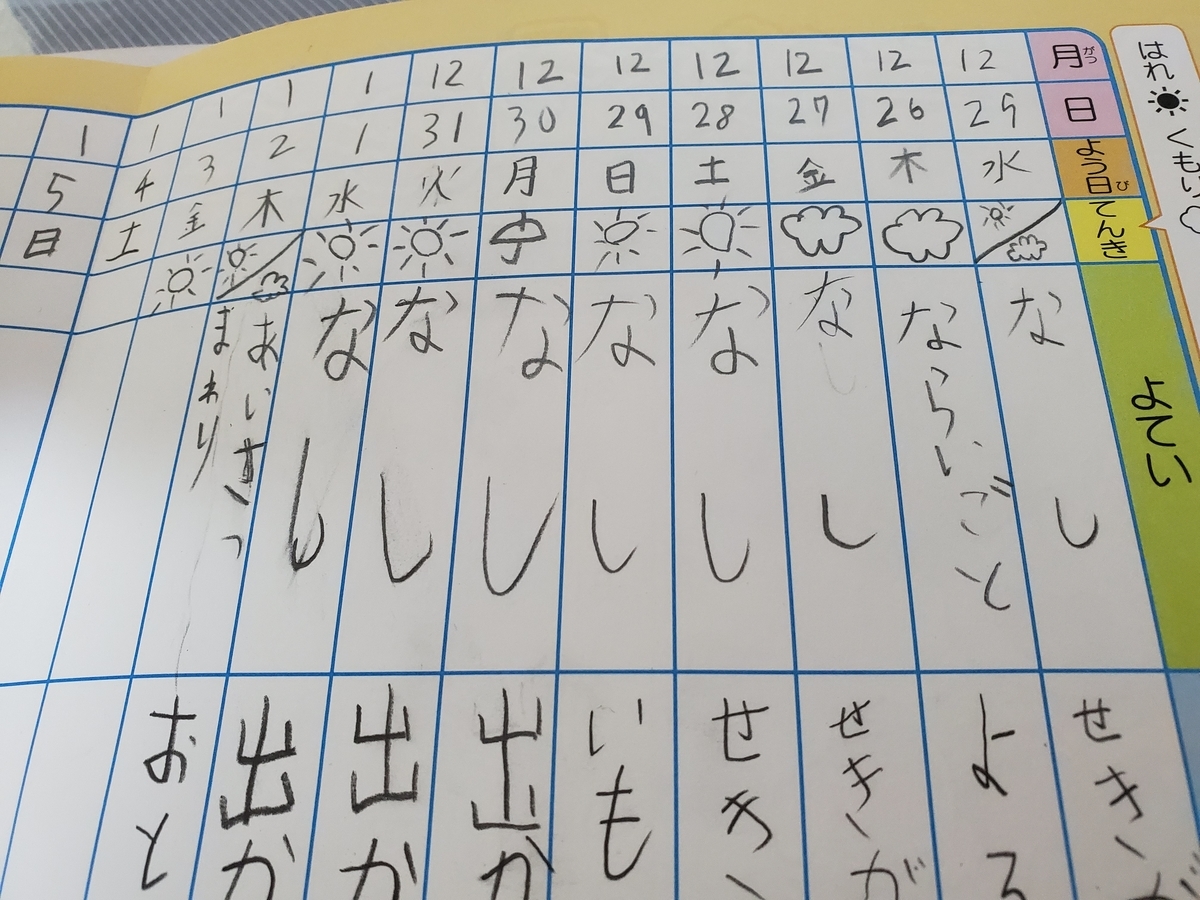 はれ くもり
月
がつ
日
よう日
び
てんき
よてい
12
25
水
なし
せきが
12
26
木
ならいごと
よる
12
27
金
なし
せきが
12
28
土
なし
せき
12
29
日
なし
いも
12
30
月
なし
出か
12
31
火
なし
出か
1
1
水
なし
出か
1
2
木
あいさつ
まわり
おと
1
3
金
1
4
土
1
5
日